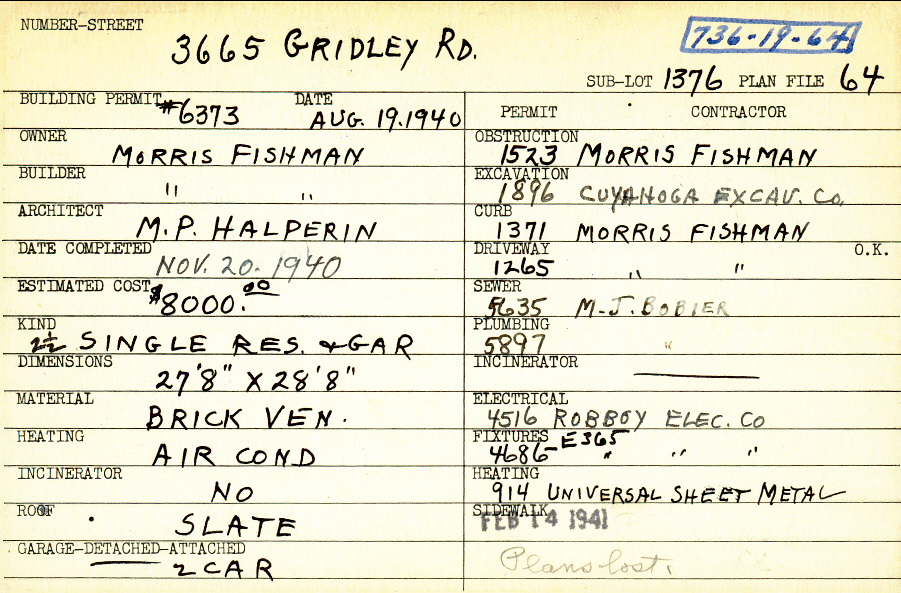 NUMBER-STREET
3665 GRIDLEY RD.
736-19-64
SUB-LOT 1376 PLAN FILE 64
BUILDING PERMIT #6373 DATE AUG. 19. 1940
PERMIT CONTRACTOR
OWNER MORRIS FISHMAN
OBSTRUCTION 1523 MORRIS FISHMAN
BUILDER " "
EXCAVATION 1896 CUYAHOGA EXCAV. Co.
ARCHITECT M.P. HALPERIN
CURB 1371 MORRIS FISHMAN
DATE COMPLETED NOV. 20. 1940
DRIVEWAY 1265 " " O.K.
ESTIMATED COST $8000.00
SEWER 5635 M.J. BOBIER
KIND 2½ SINGLE RES. & GAR
PLUMBING 5897 "
DIMENSIONS 27'8" X 28'8"
INCINERATOR
MATERIAL BRICK VEN.
ELECTRICAL 4516 ROBBOY ELEC. Co
HEATING AIR COND
FIXTURES E365 4686 " " "
INCINERATOR NO
HEATING 914 UNIVERSAL SHEET METAL
ROOF SLATE
SIDEWALK FEB 14 1941
GARAGE-DETACHED-ATTACHED 2 CAR
Plans lost.